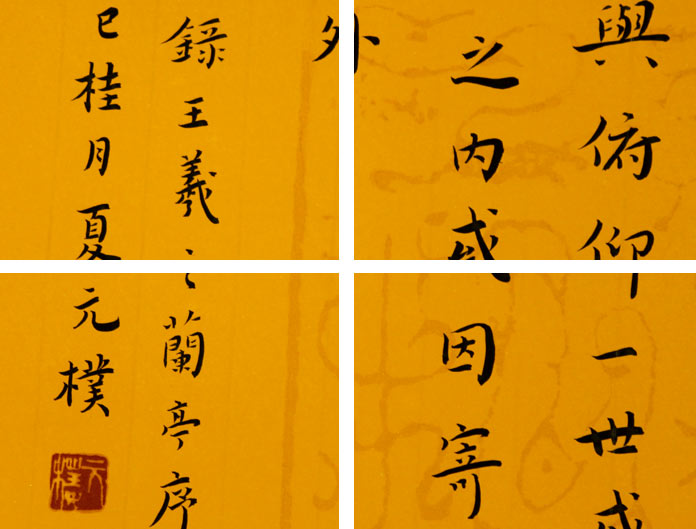 與俯仰一世或
之內或因寄
外
錄王羲之蘭亭序
巳桂月夏元樸
元樸